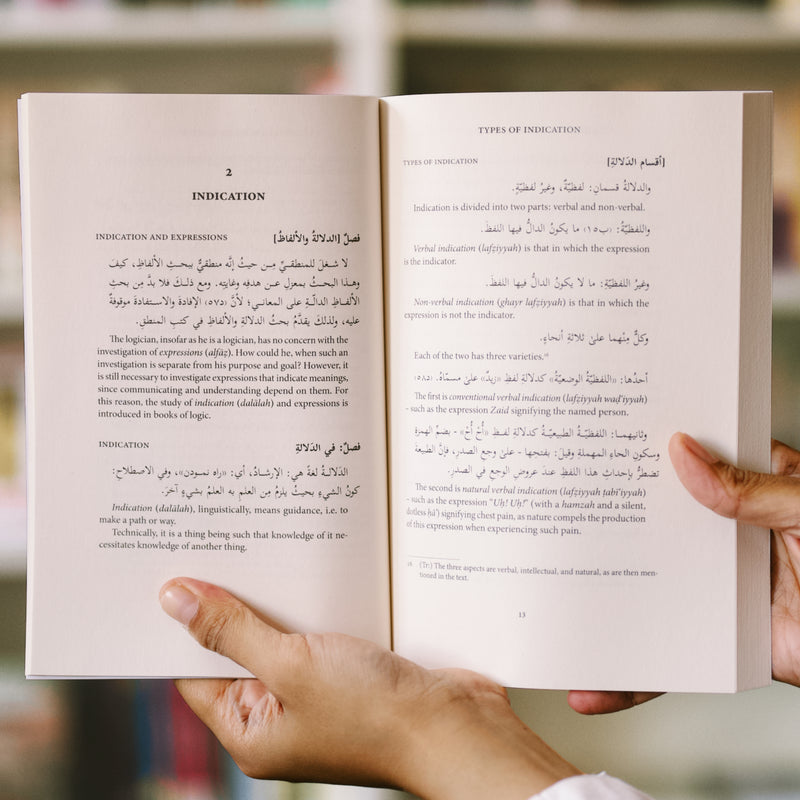 2
INDICATION
INDICATION AND EXPRESSIONS
فصلٌ [الدلالةُ والألفاظُ]
لا شـغلَ للمنطقـيِّ مِـن حيثُ إنَّه منطقيٌّ ببحـثِ الألفاظِ، كيفَ
وهـذا البحـثُ بمعزلٍ عـن هدفِه وغايتِه. ومع ذلـكَ فلا بدَّ مِن بحثِ
الألفـاظِ الدالَّـةِ على المعانـي؛ لأنَّ (٥٧٥) الإفادةَ والاسـتفادةَ موقوفةٌ
عليه، ولذلكَ يقدَّمُ بحثُ الدلالةِ والألفاظِ في كتبِ المنطقِ.
The logician, insofar as he is a logician, has no concern with the
investigation of expressions (alfāẓ). How could he, when such an
investigation is separate from his purpose and goal? However, it
is still necessary to investigate expressions that indicate meanings,
since communicating and understanding depend on them. For
this reason, the study of indication (dalālah) and expressions is
introduced in books of logic.
INDICATION
فصلٌ: في الدَلالةِ
الدَلالـةُ لغةً هي: الإرشـادُ، أي: «راه نمـودن»، وفي الاصطلاحِ:
كونُ الشيءِ بحيثُ يلزمُ مِن العلمِ به العلمُ بشيءٍ آخرَ.
Indication (dalālah), linguistically, means guidance, i.e. to
make a path or way.
Technically, it is a thing being such that knowledge of it ne-
cessitates knowledge of another thing.
TYPES OF INDICATION
TYPES OF INDICATION
[أقسام الدَلالةِ]
والدلالةُ قسمانِ: لفظيّةٌ، وغيرُ لفظيّةٍ.
Indication is divided into two parts: verbal and non-verbal.
واللفظيّةُ: (ب١٥) ما يكونُ الدالُّ فيها اللفظَ.
Verbal indication (lafẓiyyah) is that in which the expression
is the indicator.
وغيرُ اللفظيّةِ: ما لا يكونُ الدالُّ فيها اللفظَ.
Non-verbal indication (ghayr lafẓiyyah) is that in which the
expression is not the indicator.
وكلٌّ مِنْهما علىٰ ثلاثةِ أنحاءٍ.
Each of the two has three varieties.¹⁸
أحدُها: «اللفظيّةُ الوضعيّةُ» كدلالةِ لفظِ «زيدٌ» علىٰ مسمّاهُ. (٥٨٥)
The first is conventional verbal indication (lafẓiyyah waḍʿiyyah)
- such as the expression Zaid signifying the named person.
وثانيهمـا: اللفظيّـةُ الطبيعيّـةُ كدلالةِ لفـظِ «أُحْ أُحْ» - بضمِّ الهمزةِ
وسكونِ الحاءِ المهملةِ وقيلَ: بفتحِها - علىٰ وجعِ الصدرِ، فإنَّ الطبيعةَ
تضطرُّ بإحداثِ هذا اللفظِ عندَ عروضِ الوجعِ في الصدرِ.
The second is natural verbal indication (lafẓiyyah ṭabīʿiyyah)
- such as the expression "Uḥ! Uḥ!" (with a hamzah and a silent,
dotless ḥāʾ) signifying chest pain, as nature compels the production
of this expression when experiencing such pain.
18 (Tr.) The three aspects are verbal, intellectual, and natural, as are then men-
tioned in the text.
13